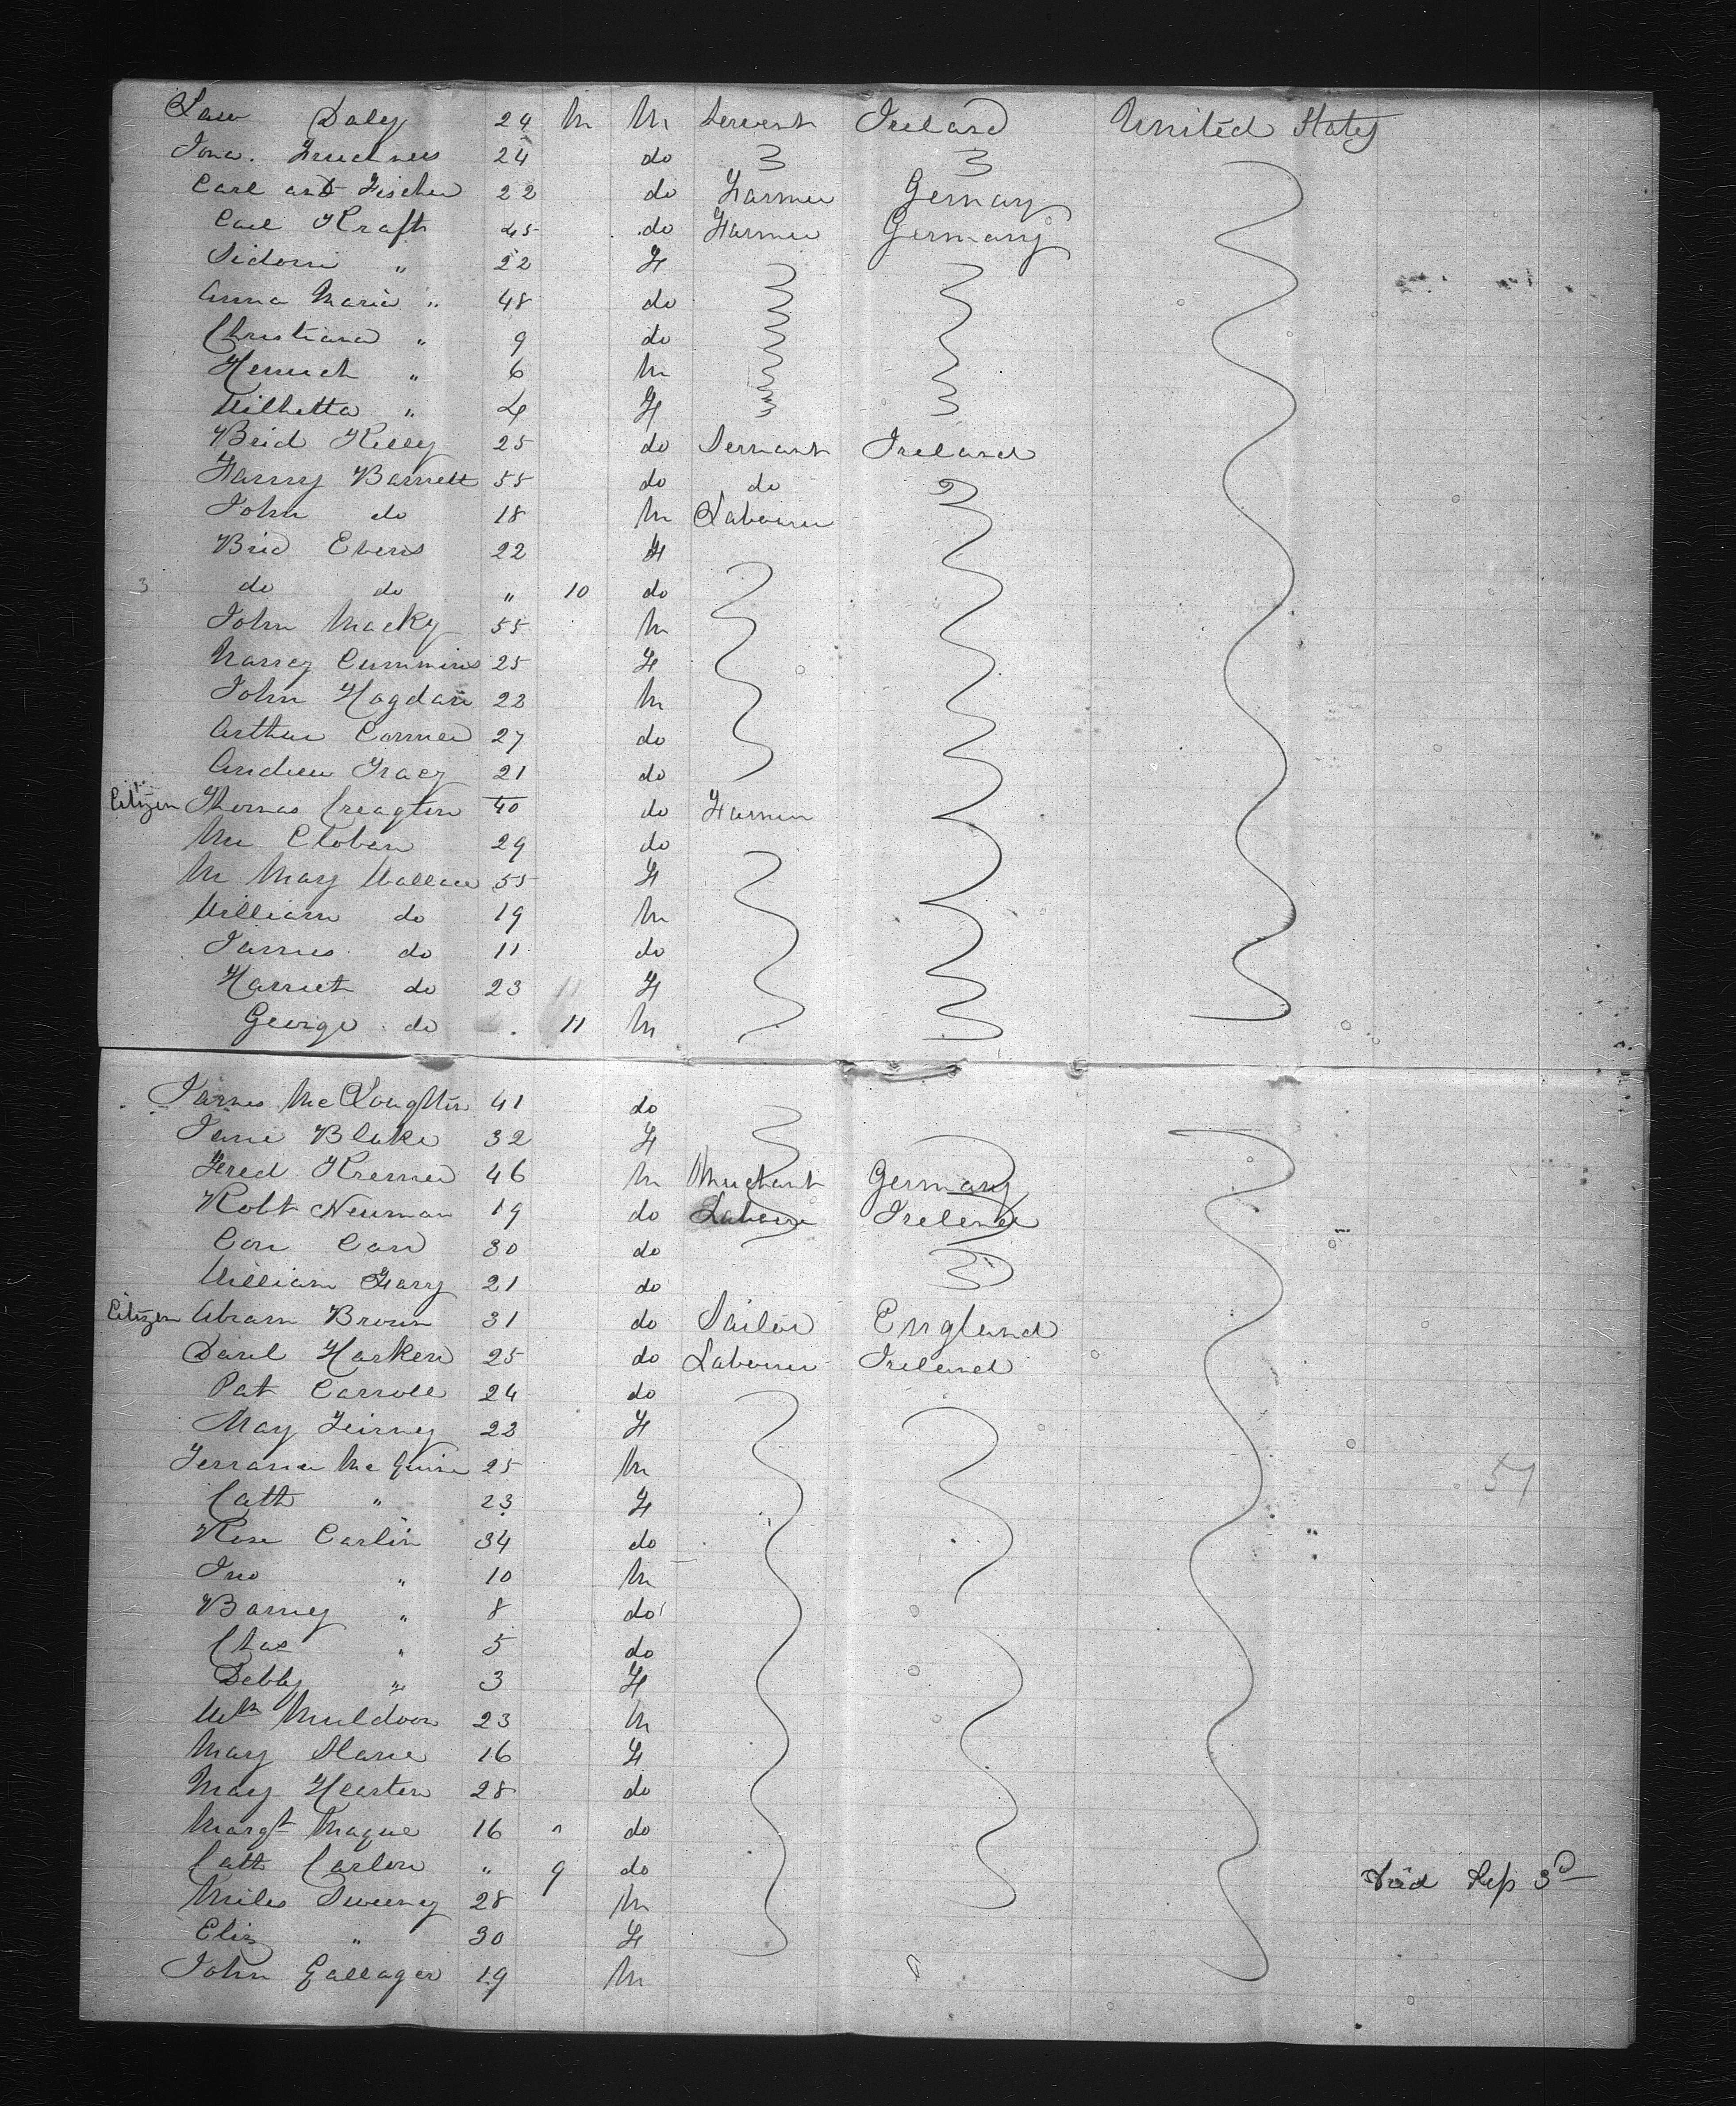 Law Daly 24 M M Servent Ireland United States
Jona. 24 do
Carl Fischer 22 do Farmer Gernany
Carl Kraft 45 do Farmer Germany
Sidoni " 22 F
Anna Maria " 48 do
Christiana " 9 do
Henrich " 6 M
Wilhetta " 4 F
Brid Kelly 25 do Servant Ireland
Fanny Barnett 55 do do
John do 18 M Labourer
Brid Evens 22 F
3 do do " 10 do
John Macky 55 M
Nancy Cummins 25 F
John Hogdan 22 M
Arthur 27 do
Andrew Tracy 21 do
Citizen Thomas Creagton 40 do Farmer
Cloben 29 do
M Mary Wallace 55 F
William do 19 M
James do 11 do
Harriet do 23 F
George do 11 M
James McLoughlin 41 do
Jane Blake 32 F
Fred Kremer 46 M Merchant Germany
Robt Neuman 19 do Labourer Ireland
Con 30 do
William Gary 21 do
Citizen Abram Brown 31 do Sailor England
Danl Harken 25 do Labourer Ireland
Pat Carroll 24 do
May Feirney 22 F
Terrance McGuire 25 M
Cath " 23 F
Rose Carlin 34 do
Jno " 10 M
Barney " 8 do
Chas " 5 do
Debby " 3 F
Wm Muldoon 23 M
Mary Slane 16 F
Mary Hearten 28 do
Margt Mague 16 " do
Cath Carlon " 9 do Died Sep 3D
Miles Sweeny 28 M
Eliz " 30 F
John Gallager 19 M
57